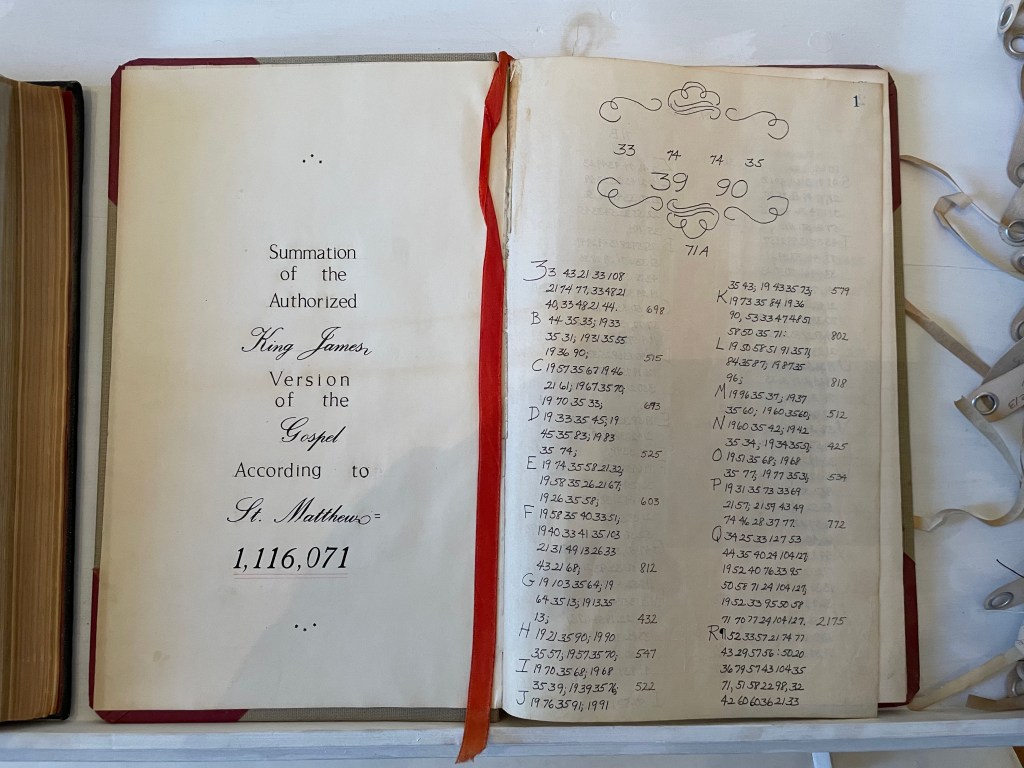 Summation
of the
Authorized
King James
Version
of the
Gospel
According to
St. Matthew =
1,116,071
1
33 74 74 35
39 90
71A
33 43 21 33 108
21 74 77, 33 48 21
40, 33 48 21 44. 698
B 44 35 33; 19 33
35 31; 19 31 35 55
19 36 90; 515
C 19 57 35 67 19 46
21 61; 19 67 35 70;
19 70 35 33; 693
D 19 33 35 45; 19
45 35 83; 19 83
35 74; 525
E 19 74 35 58 21 32;
19 58 35 26 21 67;
19 26 35 58; 603
F 19 58 35 40 33 51;
19 40 33 41 35 103
21 31 49 13 26 33
43 21 68; 812
G 19 103 35 64; 19
64 35 13; 19 13 35
13; 432
H 19 21 35 90; 19 90
35 57; 19 57 35 70; 547
I 19 70 35 68; 19 68
35 39; 19 39 35 76; 522
J 19 76 35 91; 19 91
35 43; 19 43 35 73; 579
K 19 73 35 84 19 36
90, 53 33 47 48 51
58 50 35 71: 802
L 19 50 58 51 91 35 71;
84 35 87; 19 87 35
96; 818
M 19 96 35 37; 19 37
35 60; 19 60 35 60; 512
N 19 60 35 42; 19 42
35 34; 19 34 35 51; 425
O 19 51 35 68; 19 68
35 77; 19 77 35 31; 534
P 19 31 35 73 33 69
21 57; 21 59 43 49
74 46 28 37 77. 772
Q 34 25 33 127 53
44 35 40 24 104 127;
19 52 40 76 33 95
50 58 71 24 104 127;
19 52 33 95 50 58
71 70 77 24 104 127. 2175
R¶ 52 33 57 21 74 77
43 29 57 56: 50 20
36 79 57 43 104 35
71, 51 58 22 98, 32
42 60 60 36 21 33